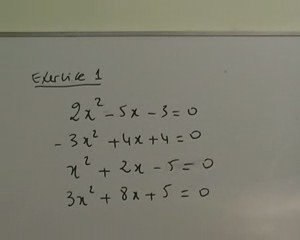 Exercice 1
2x² - 5x - 3 = 0
- 3x² + 4x + 4 = 0
x² + 2x - 5 = 0
3x² + 8x + 5 = 0